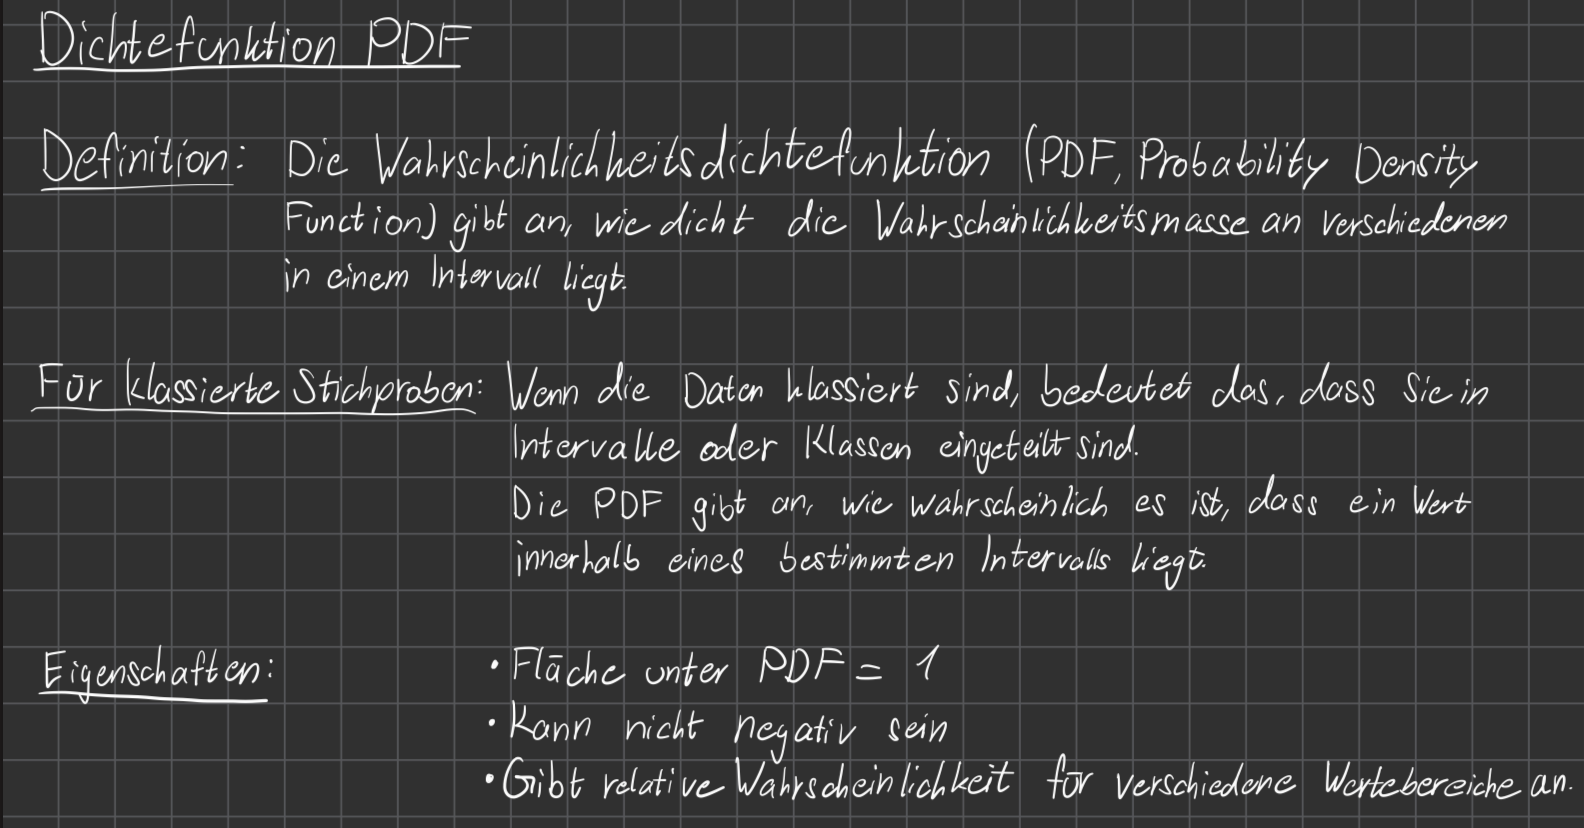 Dichtefunktion PDF
Definition: Die Wahrscheinlichkeitsdichtefunktion (PDF, Probability Density
Function) gibt an, wie dicht die Wahrscheinlichkeitsmasse an verschiedenen
in einem Intervall liegt.
Für klassierte Stichproben: Wenn die Daten klassiert sind, bedeutet das, dass Sie in
Intervalle oder Klassen eingeteilt sind.
Die PDF gibt an, wie wahrscheinlich es ist, dass ein Wert
innerhalb eines bestimmten Intervalls liegt.
Eigenschaften: • Fläche unter PDF = 1
• Kann nicht negativ sein
• Gibt relative Wahrscheinlichkeit für verschiedene Wertebereiche an.